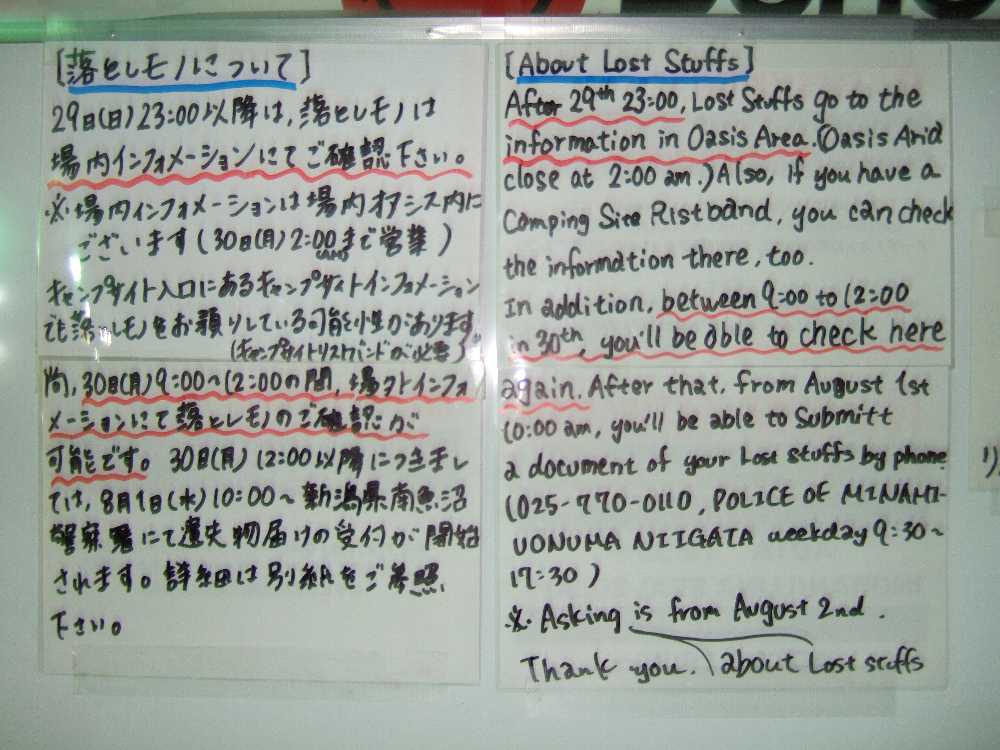 [落としモノについて]
29日(日)23:00以降は,落としモノは
場内インフォメーションにてご確認下さい。
※場内インフォメーションは場内オアシス内に
ございます(30日(月)2:00まで営業)
(AM)
キャンプサイト入口にあるキャンプサイトインフォメーション
でも落としモノをお預りしている可能性があります。
(キャンプサイトリストバンドが必要)
尚,30日(月)9:00~12:00の間,場外インフォ
メーションにて落としモノのご確認が
可能です。30日(月)12:00以降につきまし
ては,8月1日(水)10:00~新潟県南魚沼
警察署にて遺失物届けの受付が開始
されます。詳細は別紙をご参照
下さい。
[About Lost Stuffs]
After 29th 23:00, Lost Stuffs go to the
information in Oasis Area.(Oasis Arid
close at 2:00 am.) Also, if you have a
Camping Site Ristband, you can check
the information there, too.
In addition, between 9:00 to 12:00
in 30th, you'll be able to check here
again. After that, from August 1st
10:00 am, you'll be able to Submitt
a document of your Lost stuffs by phone
(025-770-0110, POLICE OF MINAMI-
UONUMA NIIGATA weekday 9:30~
17:30)
※. Asking is from August 2nd.
Thank you. about Lost stuffs